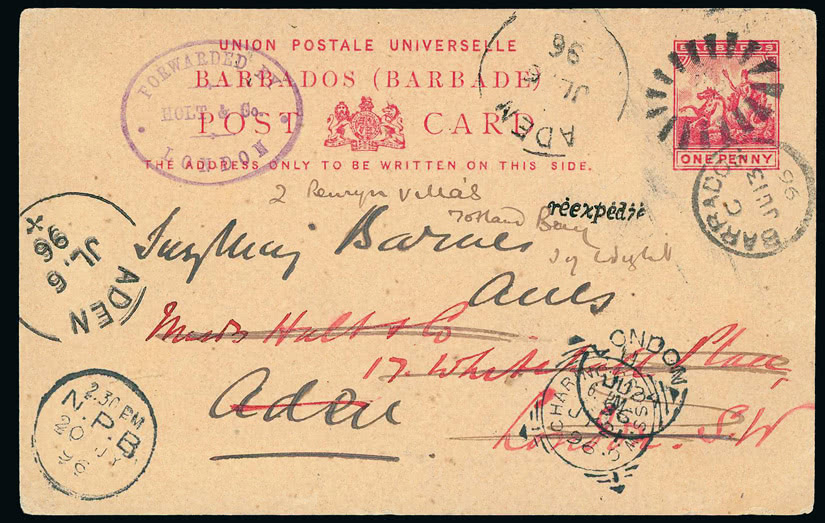 UNION POSTALE UNIVERSELLE
BARBADOS (BARBADE)
POST CARD
THE ADDRESS ONLY TO BE WRITTEN ON THIS SIDE.
FORWARDED BY
HOLT & Co.
LONDON
ADEN
JL 6
96
ONE PENNY
BARBADOS
C
JU 13
96
2 Penryn Villas
Totland Bay
réexpédié
Barnes
ADEN
JL 6
96
X
Messrs Holt & Co
17. Whitehall Place,
Aden
London. S.W
2.30 PM
N.P.B
20 JY
96
LONDON
CHARING CROSS